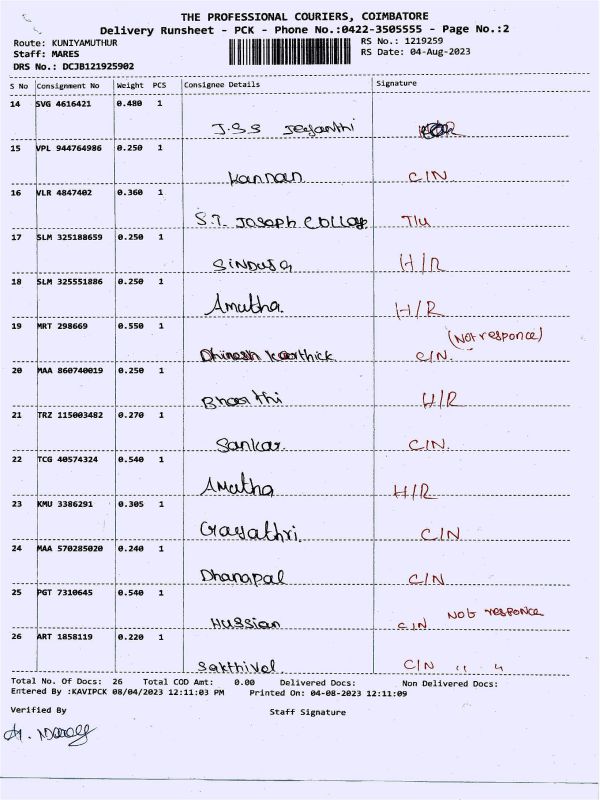 THE PROFESSIONAL COURIERS, COIMBATORE
Delivery Runsheet - PCK - Phone No.:0422-3505555 - Page No.:2
Route: KUNIYAMUTHUR RS No.: 1219259
Staff: MARES RS Date: 04-Aug-2023
DRS No.: DCJB121925902
S No Consignment No Weight PCS Consignee Details Signature
14 SVG 4616421 0.480 1
J.S.S Jeyanthi
15 VPL 944764986 0.250 1
Kannan C/N
16 VLR 4847402 0.360 1
S.T. Joseph College T/U
17 SLM 325188659 0.250 1
SINDUJA H/R
18 SLM 325551886 0.250 1
Amutha. H/R
19 MRT 298669 0.550 1
(Not responce)
Dhinesh Karthick C/N.
20 MAA 860740019 0.250 1
Bharathi H/R
21 TRZ 115003482 0.270 1
Sankar. C/N.
22 TCG 40574324 0.540 1
Amutha H/R
23 KMU 3386291 0.305 1
Gayathri. C/N
24 MAA 570285020 0.240 1
Dhanapal C/N
25 PGT 7310645 0.540 1
Not responce
Hussian C/N
26 ART 1858119 0.220 1
Sakthivel. C/N " "
Total No. Of Docs: 26 Total COD Amt: 0.00 Delivered Docs: Non Delivered Docs:
Entered By :KAVIPCK 08/04/2023 12:11:03 PM Printed On: 04-08-2023 12:11:09
Verified By Staff Signature